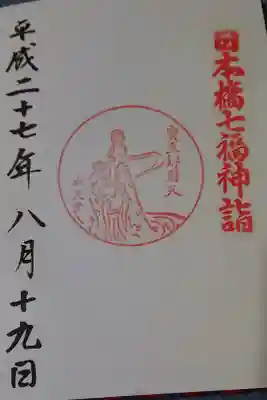 日本橋七福神詣
平成二十七年八月十九日